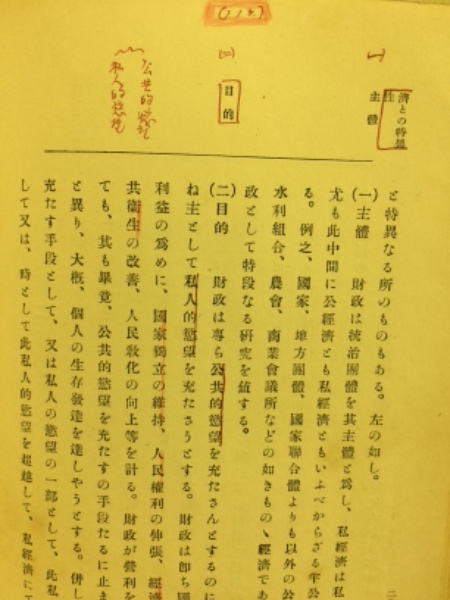 (一)
濟との特異
性
主體
(二)
目的
公共的慾望
私人的慾望
と特異なる所のものもある。左の如し。
(一)主體 財政は統治團體を其主體と爲し、私經濟は私
尤も此中間に公經濟とも私經濟ともいふべからざる半公
る。例之、國家、地方團體、國家聯合體よりも以外の公
水利組合、農會、商業會議所などの如きもの、經濟であ
政として特段なる研究を値する。
(二)目的 財政は專ら公共的慾望を充たさんとするのに
ね主として私人的慾望を充たさうとする。財政は卽ち國
利益の爲めに、國家獨立の維持、人民權利の伸張、經濟
共衞生の改善、人民敎化の向上等を計る。財政が營利を
ても、其も畢竟、公共的慾望を充たすの手段たるに止ま
と異り、大槪、個人の生存發達を達しやうとする。併し
充たす手段として、又は私人の慾望の一部として、此私
して又は、時として此私人的慾望を超越して、私經濟に
二